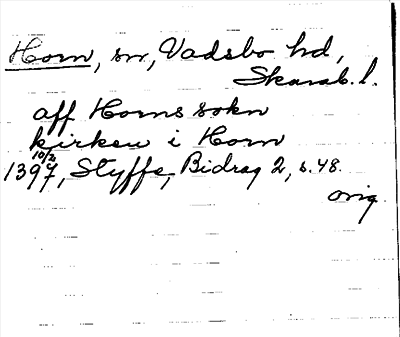 Horn, sn, Vadsbo hd,
Skarab. l.
aff Horns sokn
kirken i Horn
10/2
1397, Styffe, Bidrag 2, s. 48.
orig.